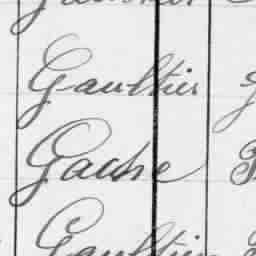 Gaultier
Gache
Gaultier